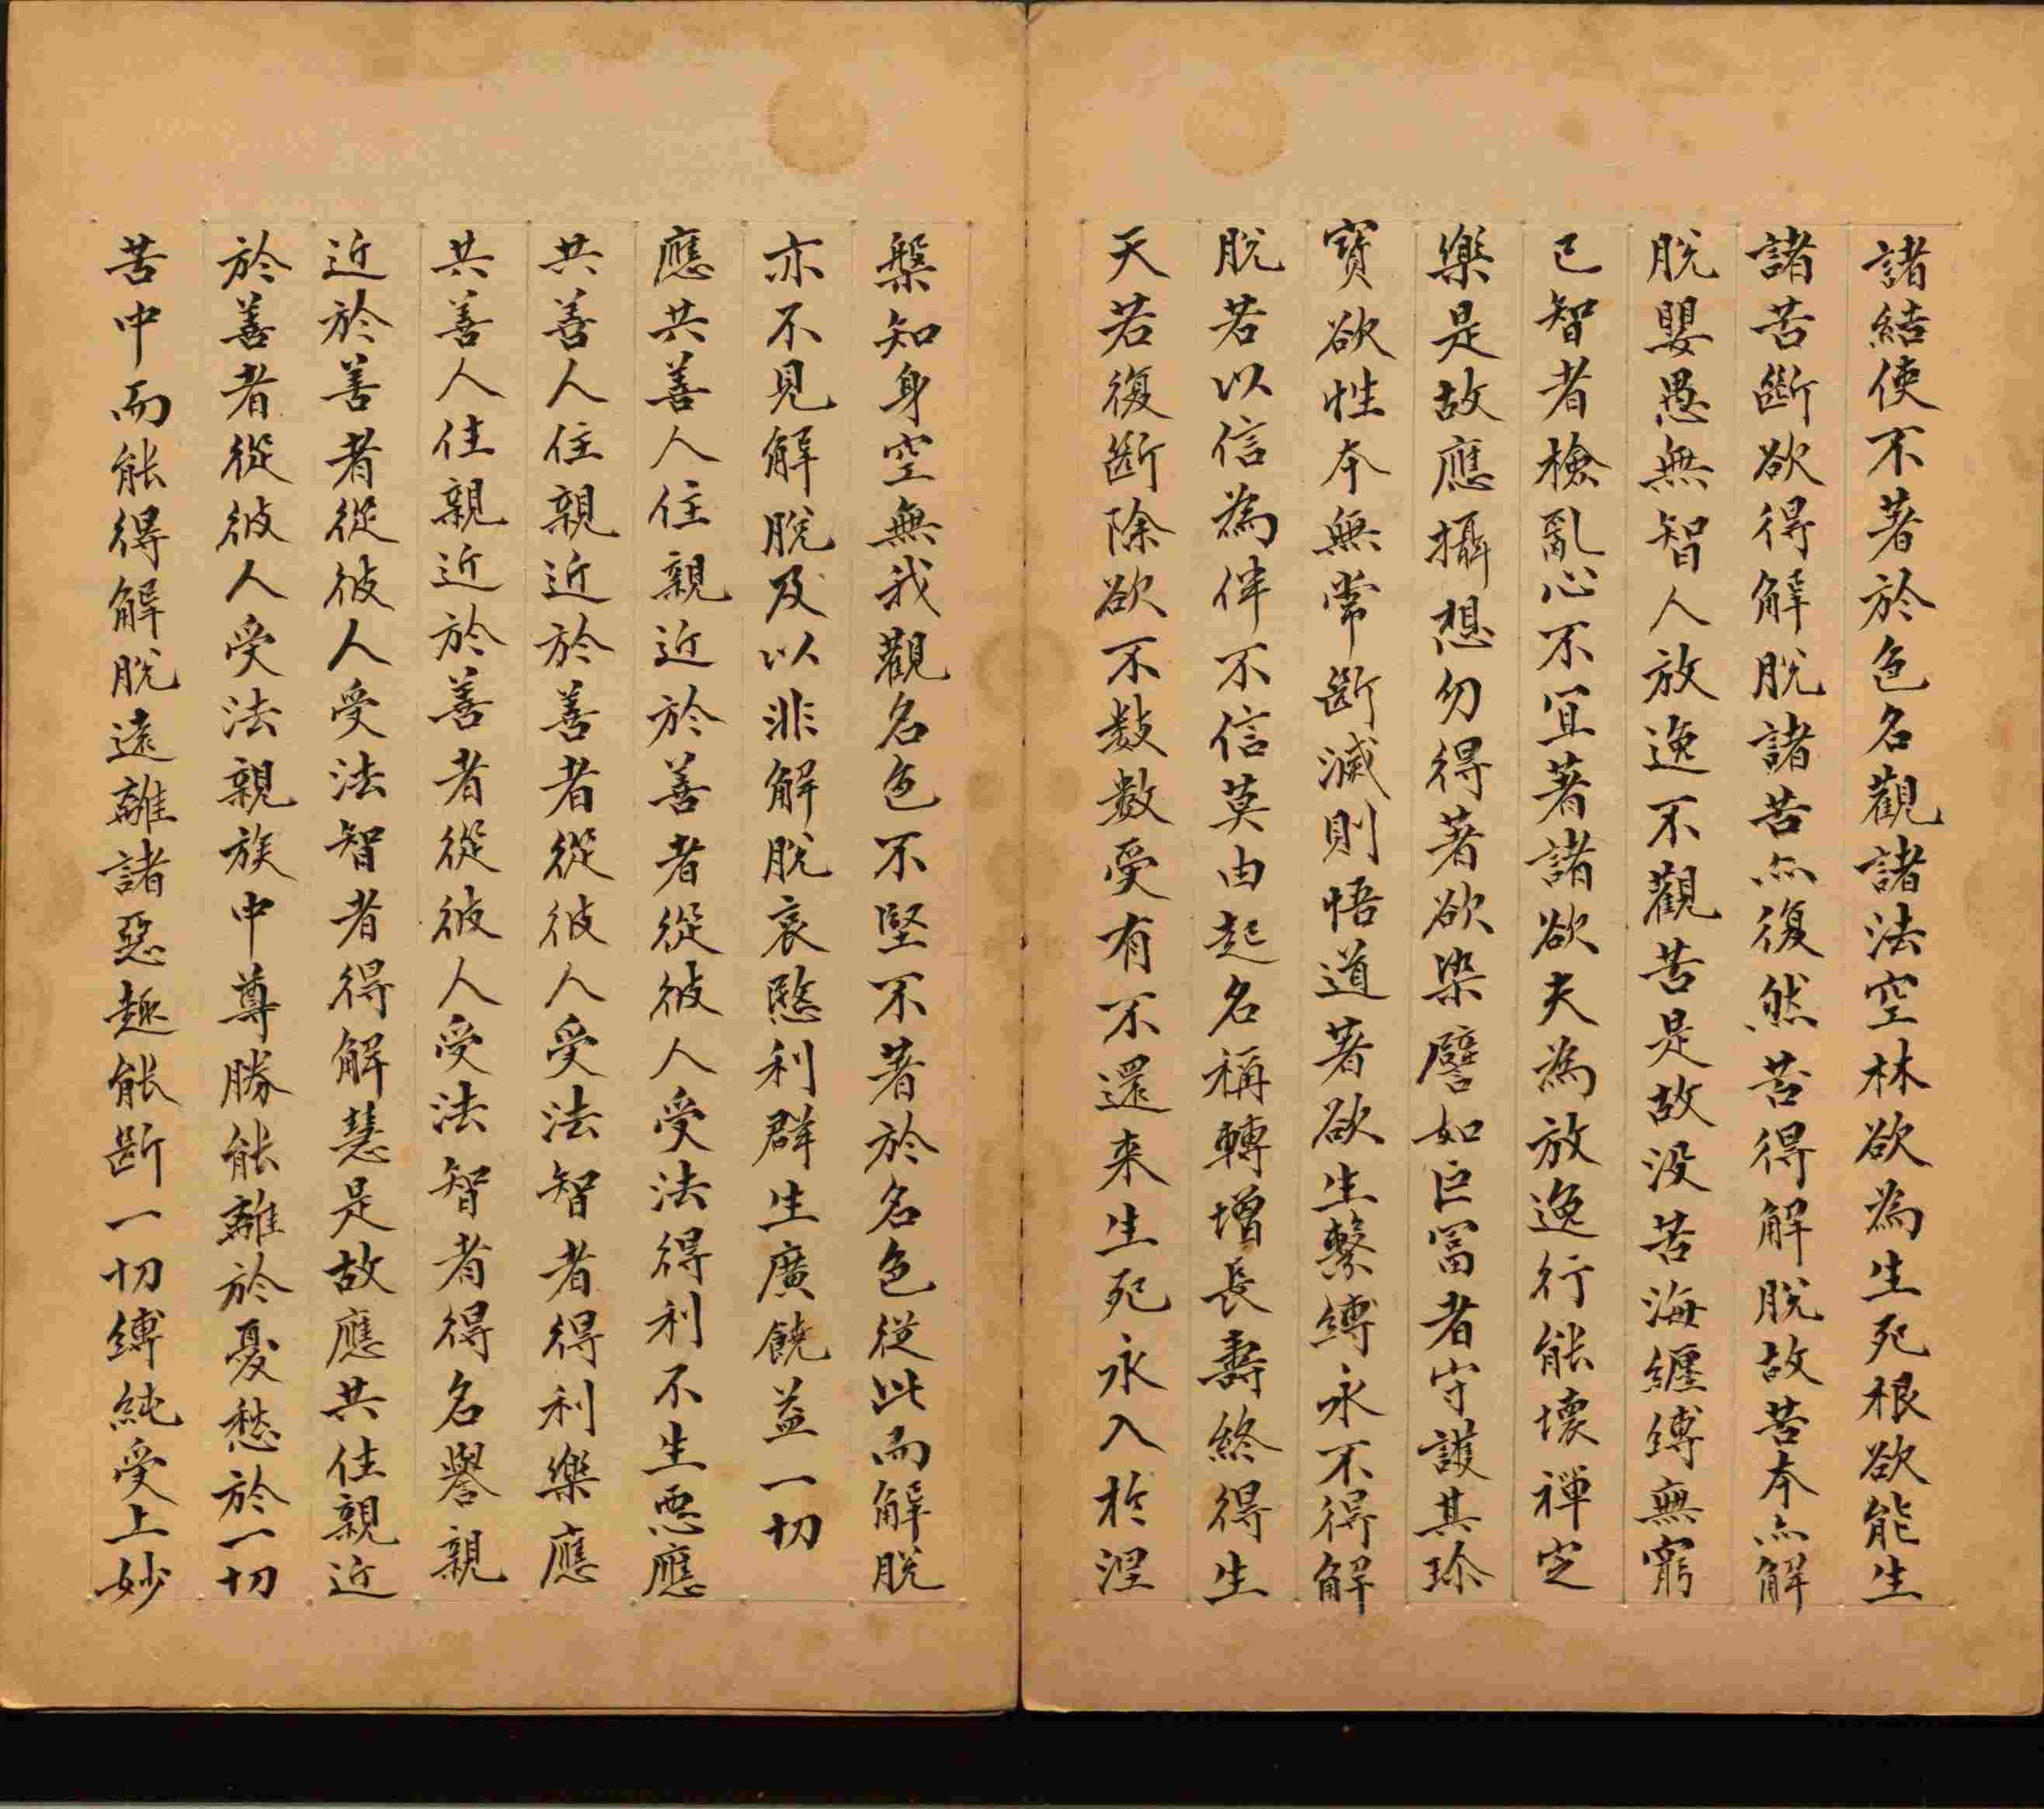 諸結使不著於色名觀諸法空林欲為生死根欲能生
諸苦斷欲得解脫諸苦亦復然苦得解脫故苦本亦解
脫嬰愚無智人放逸不觀苦是故没苦海纏縛無窮
已智者檢亂心不宜著諸欲夫為放逸行能壞禪定
樂是故應攝想勿得著欲染譬如巨富者守護其珎
寶欲性本無常斷滅則悟道著欲生繫縛永不得解
脫若以信為伴不信莫由起名稱轉增長壽終得生
天若復斷除欲不數數受有不還来生死永入於涅
槃知身空無我觀名色不堅不著於名色從此而解脫
亦不見解脫及以非解脫哀愍利群生廣饒益一切
應共善人住親近於善者從彼人受法得利不生惡應
共善人住親近於善者從彼人受法智者得利樂應
共善人住親近於善者從彼人受法智者得名譽親
近於善者從彼人受法智者得解慧是故應共住親近
於善者從彼人受法親族中尊勝能離於憂愁於一切
苦中而能得解脫遠離諸惡趣能斷一切縛純受上妙